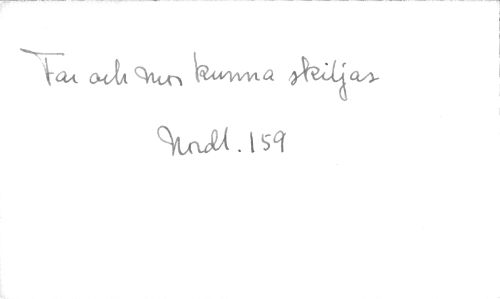 Far och mor kunna skiljas
Nordl. 159